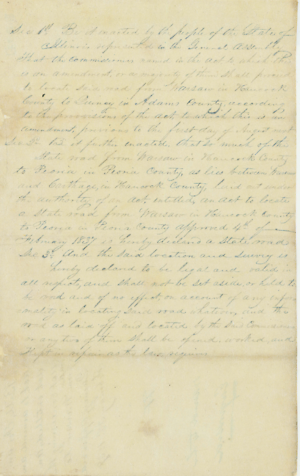 Sec 1st Be it enacted by the people of the State of
Illinois represented in the General Assembly
That the commissioners named in the act to which this
is an amendment, or a majority of them shall proceed
to locate said road from Warsaw in Hancock
County to Quincy in Adams County according
to the provisions of the act to which this is an
amendment, previous to the first day of August next
Sec 2d Be it further enacted that so much of the
State road from Warsaw in Hancock County
to Peoria in Peoria County as lies between Warsaw
and Carthage, in Hancock County, laid out under
the authority of an act entitled, an act to locate
a State road from Warsaw in Hancock County
to Peoria in Peoria County approved 4th of
February 1837 is hereby declared a State road
Sec 3d And the said location and survey is
hereby declared to be legal and valid in
all respects, and shall not be set aside or held to
be void and of no effect on account of any infor-
mality in locating said road
road as laid off and located by the said Commissioners
or majority of them shall be opened, worked, and
kept in repair as the law requires